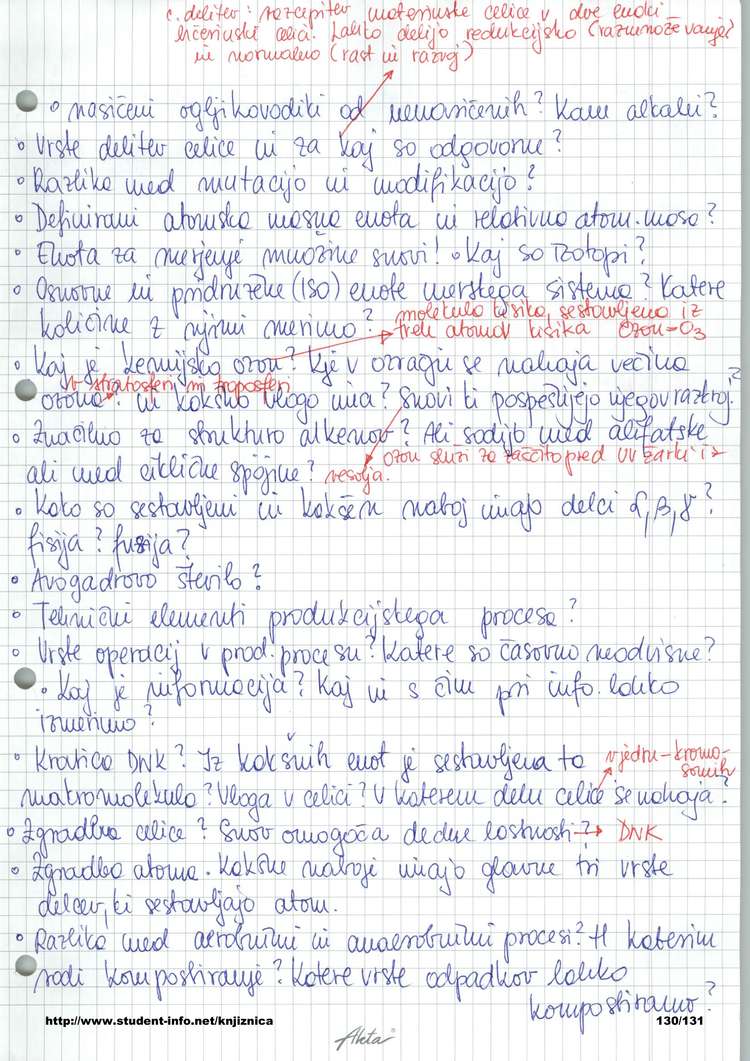 c. delitev: razcepitev materinske celice v dve enaki
hčerinski celici. Lahko delijo redukcijsko (razmnoževanje)
in normalno (rast in razvoj)
• nasičeni ogljikovodiki od nenasičenih? Kam alkalni?
• Vrste delitev celice in za kaj so odgovorne?
• Razlika med mutacijo in modifikacijo?
• Definirani atomska masna enota in relativna atom. masa?
• Enota za merjenje množine snovi! • Kaj so izotopi?
• Osnovne in pridružene (ISO) enote merskega sistema? Katere
količine z njimi merimo?
molekula kisika, sestavljena iz
treh atomov kisika Ozon=O3
• Kaj je kemijsko ozon? Kje v ozračju se nahaja večina
v stratosferi in troposferi
ozona? in kakšno vlogo ima? Snovi ki pospešujejo njegov razkroj?
• Značilno za strukturo alkenov? Ali sodijo med alifatske
ozon služi za zaščito pred UV žarki iz
ali med ciklične spojine? vesolja.
• Kako so sestavljeni in kakšen naboj imajo delci α, β, γ?
fisija? fuzija?
• Avogadrovo število?
• Tehnični elementi produkcijskega procesa?
• Vrste operacij v prod. procesu? Katere so časovno neodvisne?
• Kaj je informacija? Kaj in s čim pri info. lahko
izmerimo?
• Kratica DNK? Iz kakšnih enot je sestavljena ta
v jedru-kromo-
somih
makromolekula? Vloga v celici? V katerem delu celice se nahaja?
• Zgradba celice? Snov omogoča dedne lastnosti? → DNK
• Zgradba atoma. Kakšne naboje imajo glavne tri vrste
delcev, ki sestavljajo atom.
• Razlika med aerobnimi in anaerobnimi procesi? H katerim
sodi kompostiranje? Katere vrste odpadkov lahko
kompostiramo?
http://www.student-info.net/knjiznica
130/131
Akta